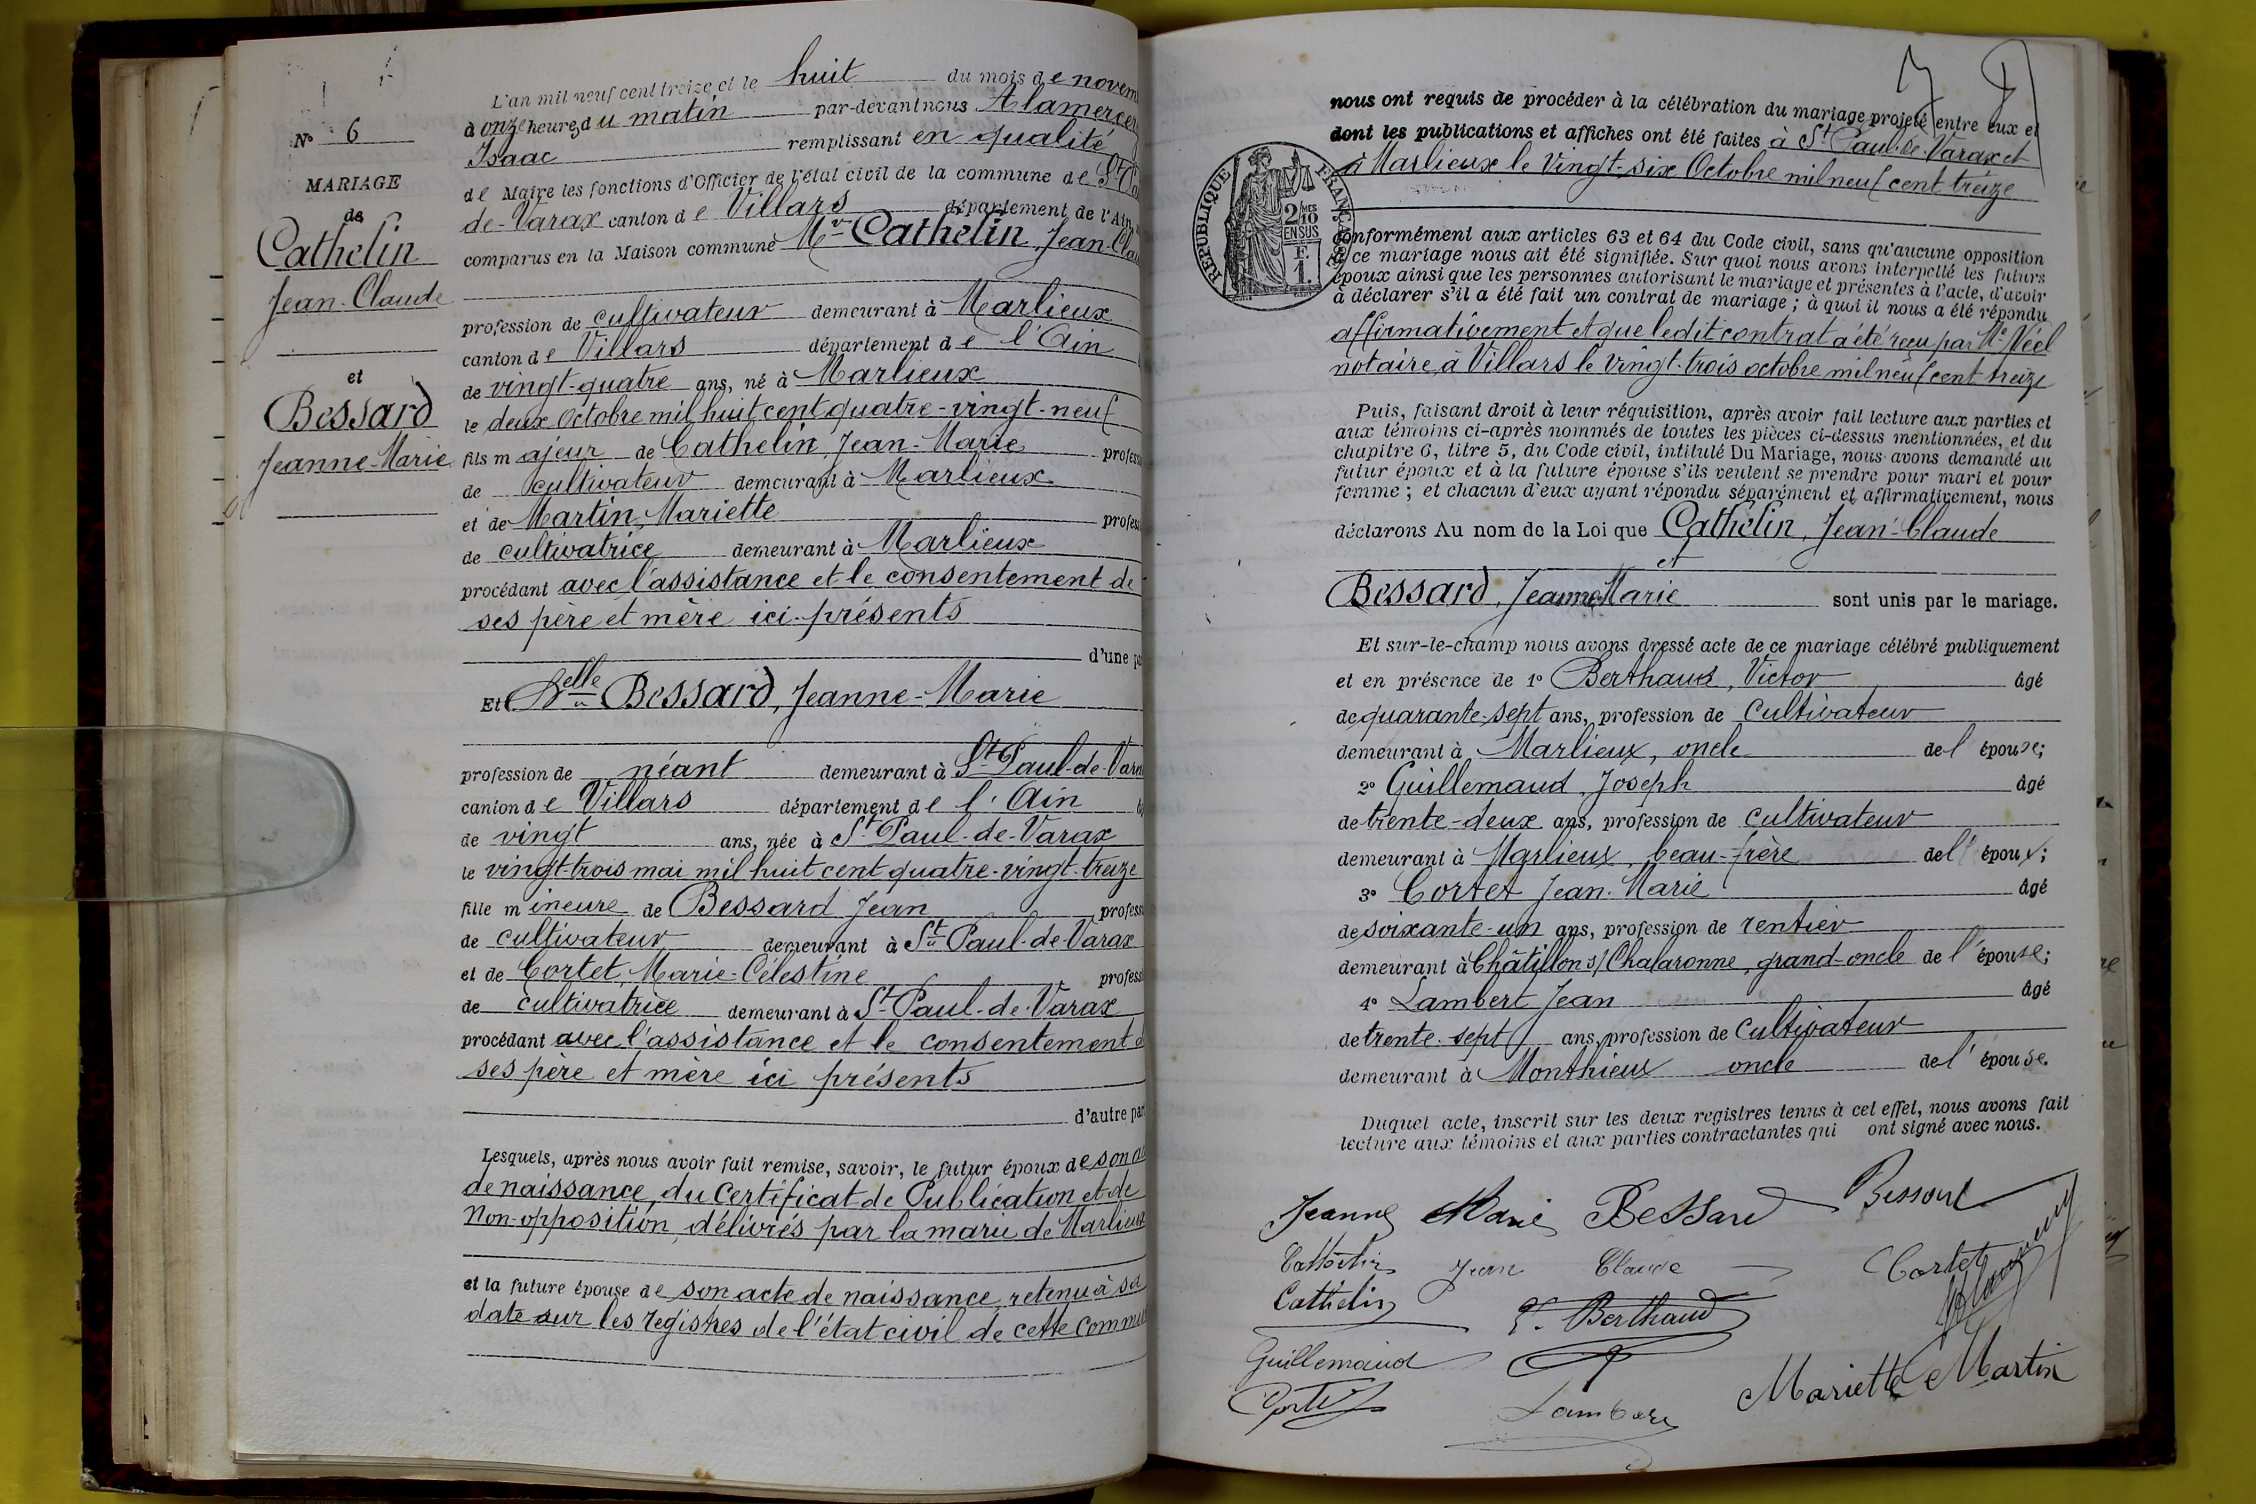 N° 6
MARIAGE
de
Cathelin
Jean-Claude
et
Bessard
Jeanne-Marie
L'an mil neuf cent treize et le huit du mois de novem
à onze heures du matin par-devant nous Alamercer
Isaac remplissant en qualité
de Maire les fonctions d'Officier de l'état civil de la commune de St
de-Varax canton de Villars département de l'Ain,
comparus en la Maison commune Mr Cathelin, Jean-Clau
profession de cultivateur demeurant à Marlieux
canton de Villars département de l'Ain
de vingt-quatre ans, né à Marlieux
le deux Octobre mil huit cent quatre-vingt-neuf
fils majeur de Cathelin, Jean-Marie profess
de cultivateur demeurant à Marlieux
et de Martin, Mariette profess
de cultivatrice demeurant à Marlieux
procédant avec l'assistance et le consentement de
ses père et mère ici présents
d'une pa
Et Delle Bessard, Jeanne-Marie
profession de néant demeurant à St Paul-de-Vara
canton de Villars département de l'Ain
de vingt ans, née à St Paul-de-Varax
le vingt-trois mai mil huit cent quatre-vingt-treize
fille mineure de Bessard Jean profess
de cultivateur demeurant à St Paul-de-Varax
et de Cortet, Marie-Célestine profess
de cultivatrice demeurant à St Paul-de-Varax
procédant avec l'assistance et le consentement d
ses père et mère ici présents
d'autre par
Lesquels, après nous avoir fait remise, savoir, le futur époux de son a
de naissance, du certificat de Publication et de
Non-opposition, délivrés par la mairie de Marlieux
et la future épouse de son acte de naissance, retenu à sa
date sur les registres de l'état civil de cette commu
nous ont requis de procéder à la célébration du mariage projeté entre eux et
dont les publications et affiches ont été faites à St Paul-de-Varax et
à Marlieux le vingt-six Octobre mil neuf cent treize
RÉPUBLIQUE FRANÇAISE
2/10 MES
EN SUS
F.
1.
conformément aux articles 63 et 64 du Code civil, sans qu'aucune opposition
à ce mariage nous ait été signifiée. Sur quoi nous avons interpellé les futurs
époux ainsi que les personnes autorisant le mariage et présentes à l'acte, d'avoir
à déclarer s'il a été fait un contrat de mariage ; à quoi il nous a été répondu
affirmativement et que ledit contrat a été reçu par Me Néel
notaire à Villars le vingt-trois octobre mil neuf cent treize
Puis, faisant droit à leur réquisition, après avoir fait lecture aux parties et
aux témoins ci-après nommés de toutes les pièces ci-dessus mentionnées, et du
chapitre 6, titre 5, du Code civil, intitulé Du Mariage, nous avons demandé au
futur époux et à la future épouse s'ils veulent se prendre pour mari et pour
femme ; et chacun d'eux ayant répondu séparément et affirmativement, nous
déclarons Au nom de la Loi que Cathelin, Jean-Claude
et
Bessard, Jeanne Marie sont unis par le mariage.
Et sur-le-champ nous avons dressé acte de ce mariage célébré publiquement
et en présence de 1° Berthaud, Victor âgé
de quarante-sept ans, profession de cultivateur
demeurant à Marlieux, oncle de l'épouse;
2° Guillemaud, Joseph âgé
de trente-deux ans, profession de cultivateur
demeurant à Marlieux, beau-frère de l'époux;
3° Cortet Jean-Marie âgé
de soixante-un ans, profession de rentier
demeurant à Châtillon s/ Chalaronne, grand-oncle de l'épouse;
4° Lambert Jean âgé
de trente-sept ans, profession de cultivateur
demeurant à Monthieux oncle de l'épouse.
Duquel acte, inscrit sur les deux registres tenus à cet effet, nous avons fait
lecture aux témoins et aux parties contractantes qui ont signé avec nous.
Jeanne Marie Bessard Bessard
Cathelin Jean Claude Cortet
Cathelin V. Berthaud
Guillemaud
Cortet Lambert Mariette Martin